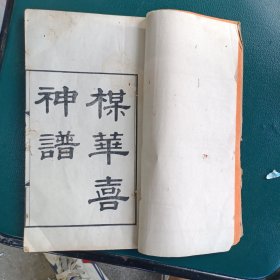 楳華喜
神譜